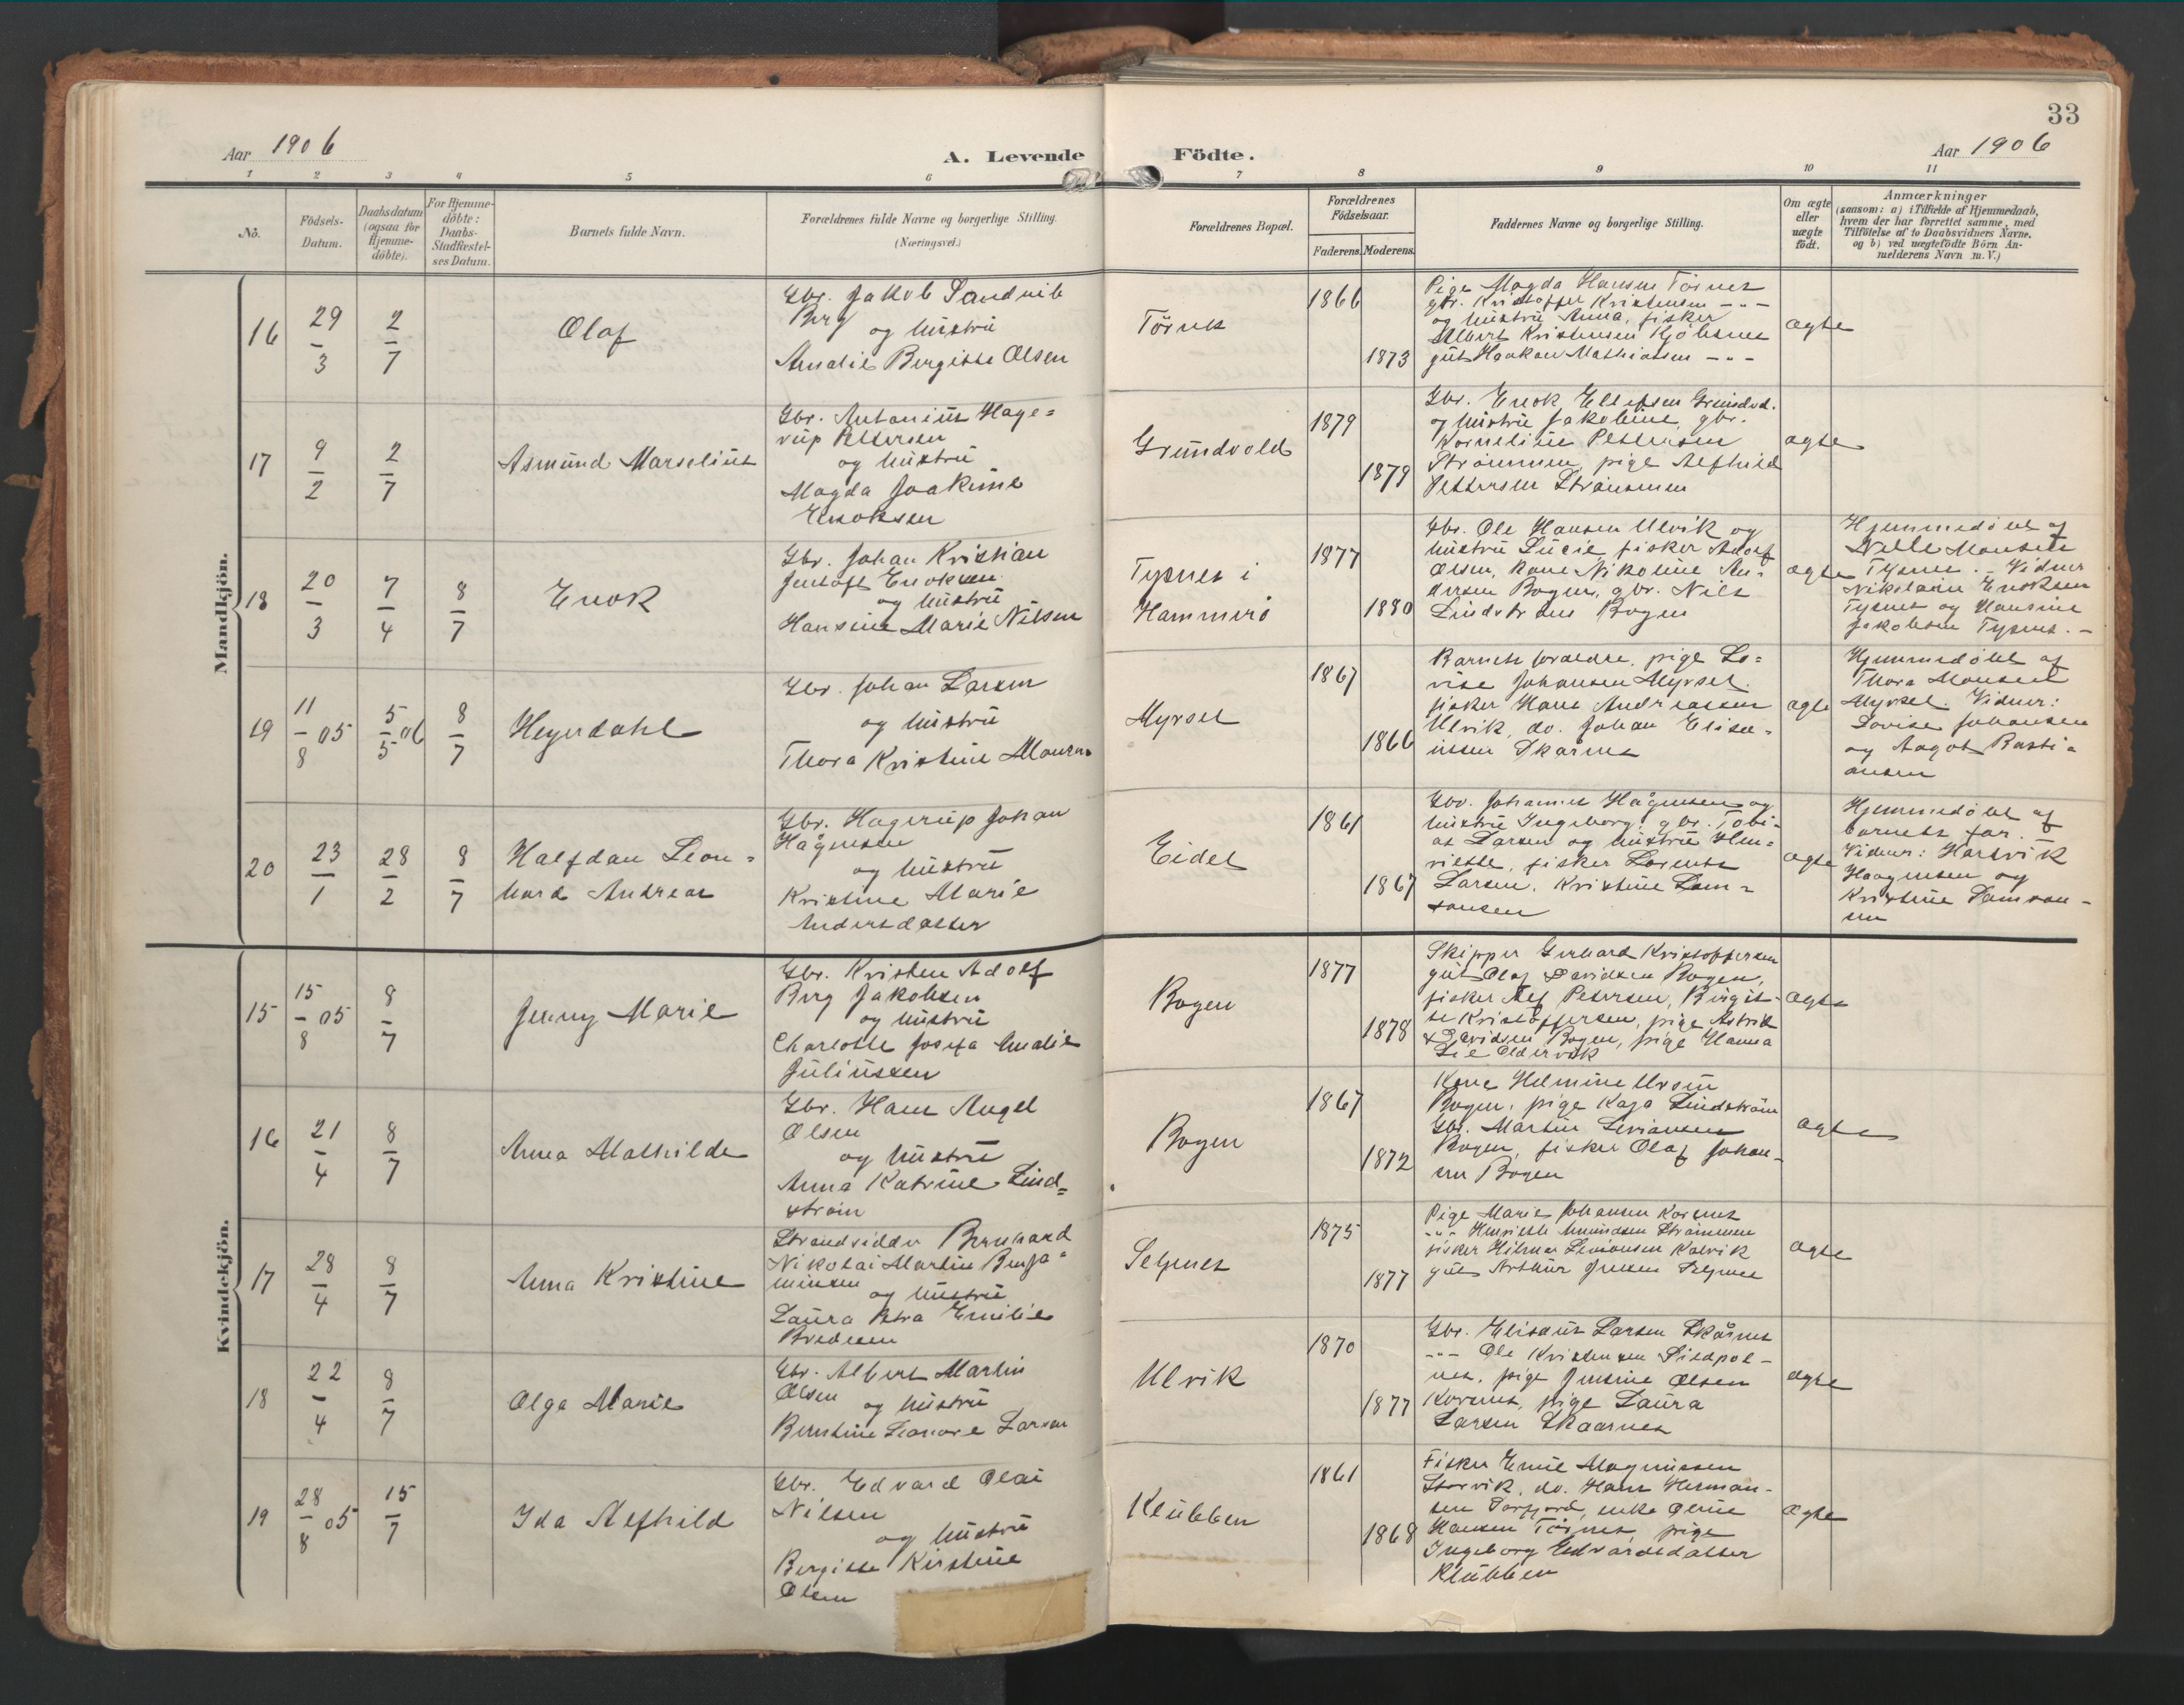 33
Aar 1906
A. Levende Födte.
Aar 1906
1 2 3 4 5 6 7 8 9 10 11
No.
Födsels-
Datum.
Daabsdatum
(ogsaa for
Hjemme-
döbte).
For Hjemme-
döbte:
Daabs-
Stadfæstel-
ses Datum.
Barnets fulde Navn.
Forældrenes fulde Navne og borgerlige Stilling.
(Næringsvei.)
Forældrenes Bopæl.
Forældrenes
Födselsaar.
Faderens. Moderens.
Faddernes Navne og borgerlige Stilling.
Om ægte
eller
uægte
födt.
Anmærkninger
(saasom: a) i Tilfælde af Hjemmedaab,
hvem der har forrettet samme, med
Tilföielse af to Daabsvidners Navne.
og b) ved uægtefödte Börn An-
melderens Navn m. V.)
Mandkjön.
16
29/3
2/7
Olaf
Gbr. Jakob Sandvik
Berg og hustru
Amalie Bergitte Olsen
Törnes
1866
1873
Pige Magda Hansen Törnes
gbr. Kristoffer Kristensen -"-
og hustru Anna, fisker
Albert Kristensen Kjöbsnes
gut Haakon Mathiassen -"-
ægte
17
9/2
2/7
Asmund Marselius
Gbr. Antonius Hage=
rup Pettersen
og hustru
Magda Joakime
Enoksen
Grundvold
1879
1879
Gbr. Enok Ellefsen Grundvd.
og hustru Jakobine, gbr.
Kornelius Pettersen
Strömmen, pige Alfhild
Pettersen Strömmen
ægte
18
20/3
7/4
8/7
Enok
Gbr. Johan Kristian
Jentoft Enoksen
og hustru
Hansine Marie Nilsen
Tysnes i
Hammerö
1877
1880
Gbr. Ole Hansen Ulvik og
hustru Lucie, fisker Adolf
Olsen, kone Nikoline An-
dersen Bogen, gbr. Nils
Lindström Bogen
ægte
Hjemmedöbt af
Nelle Monsen
Tysnes. - Vidner
Nikolaine Enoksen
Tysnes og Hansine
Jakobsen Tysnes. -
19
11/8 05
5/5 06
8/7
Heyerdahl
Gbr. Johan Larsen
og hustru
Thora Kristine Monsen
Myrset
1867
1866
Barnets forældre, pige Lo=
vise Johansen Myrset.
fisker Hans Andreassen
Ulvik, do. Johan Elise-
ussen Skarnes
ægte
Hjemmedöbt af
Thora Monsen
Myrset. Vidner:
Lovise Johansen
og Aagot Basti-
ansen
20
23/1
28/2
8/7
Halfdan Leon=
hard Andreas
Gbr. Hagerup Johan
Hågensen
og hustru
Kristine Marie
Andersdatter
Eidet
1861
1867
Gbr. Johannes Hågensen og
hustru Ingeborg, gbr. Tobi-
as Larsen og hustru Hen=
riette, fisker Lorents
Larsen, Kristine Sam=
sonsen
ægte
Hjemmedöbt af
barnets far. -
Vidner: Hartvik
Haagensen og
Kristine Samson-
sen
Kvindekjön.
15
15/8 05
8/7
Jenny Marie
Gbr. Kristen Adolf
Berg Jakobsen
og hustru
Charlotte Josefa Amalie
Juliussen
Bogen
1877
1878
Skipper Gerhard Kristoffersen
gut Olaf Davidsen Bogen,
fisker Alf Petersen, Birgit-
te Kristoffersen, pige Astrid
Davidsen Bogen, pige Hanna
Lie Oldervik
ægte
16
21/4
8/7
Anna Mathilde
Gbr. Hans Angel
Olsen
og hustru
Anna Katrine Lind=
ström
Bogen
1867
1872
Kone Helmine Ursin
Bogen, pige Kaja Lindström
Gbr. Martin Sivertsen
Bogen, fisker Olaf Johan-
sen Bogen
ægte
17
28/4
8/7
Anna Kristine
Strandsidder Bernhard
Nikolai Martin Benja=
minsen og hustru
Laura Petra Emilie
Bredesen
Selsnes
1875
1877
Pige Marie Johansen Korsnes
-"- Henriette Amundsen Strömmen
fisker Hilmar Simonsen Kalvik
gut Arthur Jensen Selsnes
ægte
18
22/4
8/7
Olga Marie
Gbr. Albert Martin
Olsen og hustru
Berntine Leonore Larsen
Ulvik
1870
1877
Gbr. Elisæus Larsen Skårnes
-"- Ole Kristensen Sildpol-
nes, pige Jensine Olsen
Korsnes, pige Laura
Larsen Skaarnes
ægte
19
28/8 05
15/7
Ida Alfhild
Gbr. Edvard Olai
Nilsen
og hustru
Bergitte Kirstine
Olsen
Klubben
1861
1868
Fisker Emil Magnussen
Storvik, do. Hans Herman-
sen, enke Oline
Hansen Törnes, pige
Ingeborg Edvardsdatter
Klubben
ægte